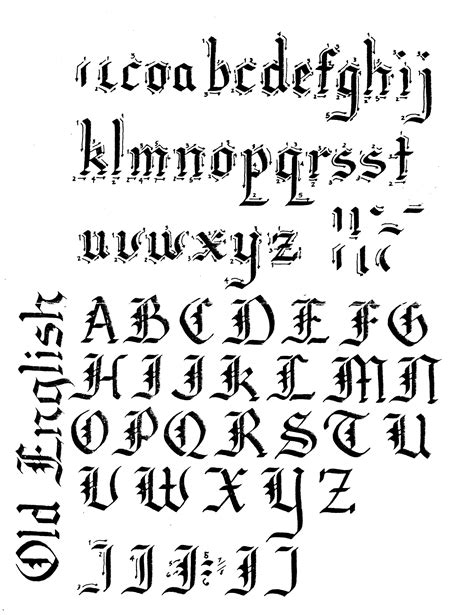 c o a b c d e f g h i j
k l m n o p q r s s t
u v w x y z
A B C D E F G
H I J K L M N
O P Q R S T U
V W X Y Z
Old English